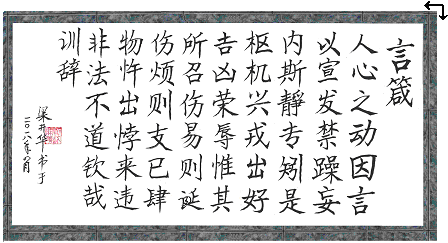 言箴
人心之动因言
以宣发禁躁妄
内斯靜专矧是
枢机兴戎出好
吉凶荣辱惟其
所召伤易则诞
伤烦则支已肆
物忤出悖来违
非法不道钦哉
训辞
梁开华书于
二〇一八年八月